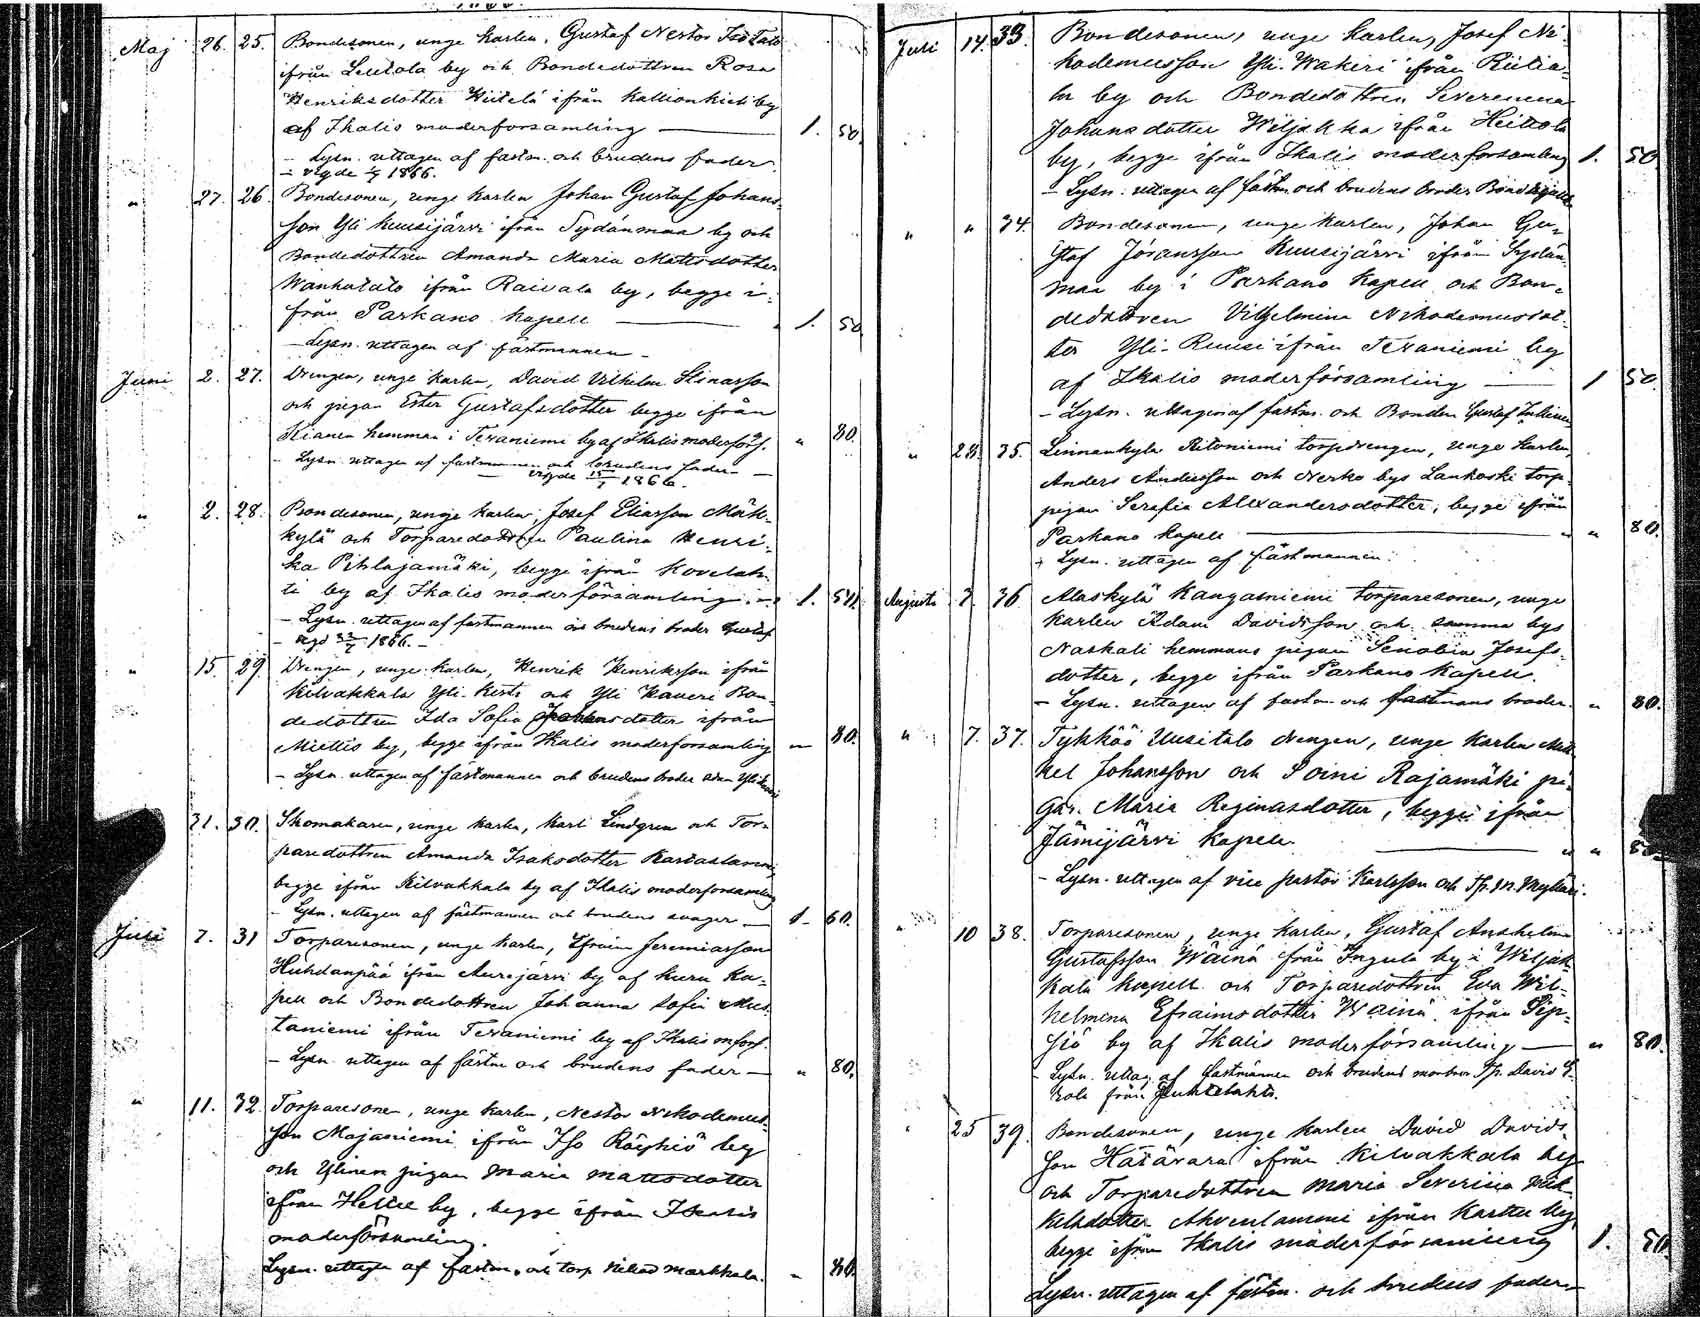 Maj 26. 25. Bondesonen, unge karlen, Gustaf Nestor Iso Talo
ifrån Leutola by och Bondedottren Rosa
Henriksdotter Wiitela ifrån Kallionkieli by
af Ikalis moderforsamling — 1. 50.
– Lysn. uttagen af fastm. och brudens fader.
– vigde 1866.
" 27. 26. Bondesonen, unge karlen Johan Gustaf Johans-
son Yli Kuusijärvi ifrån Sydänmaa by och
Bondedottren Amanda Maria Mattsdotter
Wanhatalo ifrån Raivala by, begge i-
från Parkano kapell — 1. 50
– Lysn. uttagen af fästmannen –
Juni 2. 27. Drengen, unge karlen, David Vilhelm Stinasson
och pigan Ester Gustafsdotter begge ifrån
Kianen hemman i Teraniemi by af Ikalis moderförs. " 80.
– Lysn. uttagen af fastmannen och brudens fader –
vigde 15/7 1866.
" 2. 28. Bondesonen, unge karlen Josef Eliasson Mäk-
kylä och Torparedottren Paulina Henri-
ka Pihlajamäki, begge ifrån Kovelah-
ti by af Ikalis moderförsamling. – 1. 50.
– Lysn. uttagen af fastmannen och brudens broder Gustaf
– vigd 22/7 1866. –
" 15. 29. Drengen, unge karlen, Henrik Henriksson ifrån
Kilvakkala Yli-Kirsti och Yli Kaueri Bon-
dedottren Ida Sofia Johansdotter ifrån
Miettis by, begge ifrån Ikalis moderforsamling " 80.
– Lysn. uttagen af fästmannen och brudens broder
31. 30. Skomakaren, unge karlen, Karl Lindgren och Tor-
paredottren Amanda Isaksdotter Karhaslammi
begge ifrån Kilvakkala by af Ikalis moderforsamling
– Lysn. uttagen af fästmannen och brudens svager – 1 – 60.
Juli 7. 31 Torparesonen, unge karlen, Efraim Jeremiasson
Huhdanpää ifrån Aurejärvi by af Kuru Ka-
pell och Bondedottren Johanna Sofia Mus-
taniemi ifrån Teraniemi by af Ikalis m förs.
– Lysn. uttagen af fästm och brudens fader — " 80.
" 11. 32. Torparesonen, unge karlen, Nestor Nikodemus-
son Majaniemi ifrån Iso Röyhiö by
och Ylinen pigan Maria Mattsdotter
ifrån Hellee by, begge ifrån Ikalis
moderförsamling.
Lysn. uttagen af fästm. och torp. Markkola. " 80.
Juli 14. 33. Bondesonen, unge karlen, Josef Ni-
kodemusson Yli-Wakeri ifrån Riitia-
la by och Bondedottren Severiina
Johansdotter Wiljakka ifrån Heittola
by, begge ifrån Ikalis moderforsamling 1. 50.
– Lysn. uttagen af fästm och brudens broder
" " 34. Bondesonen, unge karlen, Johan Gu-
staf Johansson Kuusijärvi ifrån Sydän-
maa by i Parkano Kapell och Bon-
dedottren Vilhelmina Nikodemusdot-
ter Yli-Ruusi ifrån Teraniemi by
af Ikalis moderförsamling — 1 50.
– Lysn. uttagen af fastm. och Bonden Gustaf
" 28. 35. Linnankylä Ritoniemi torpdrengen, unge karlen,
Anders Andersson och Nerko bys Lankoski torp-
pigan Serafia Alexandersdotter, begge ifrån
Parkano kapell — " 80.
– Lysn. uttagen af fästmannen.
Augusti 7. 36 Alaskylä Kangasniemi torparesonen, unge
karlen Adam Davidsson och samma bys
Naskali hemmans pigan Senobia Josefs-
dotter, begge ifrån Parkano Kapell.
– Lysn. uttagen af fastm och fastmans broder. " 80.
" 7. 37. Tykköö Uusitalo drengen, unge karlen Mik-
kel Johansson och Soini Rajamäki pi-
gan Maria Reginasdotter, begge ifrån
Jämijärvi Kapell. — " 80
– Lysn. uttagen af vice pastor Karlsson och Tp. m. Mylläri.
" 10 38. Torparesonen, unge karlen, Gustaf Anshelm
Gustafsson Wäinä från Ingula by i Wiljak-
kala Kapell och Torparedottren Eva Wil-
helmina Efraimsdotter Waina ifrån Sip-
sjö by af Ikalis moderförsamling — " 80.
– Lysn. uttag. af fastmannen och brudens morbror Tp. David
från Juhtelahti.
" 25 39. Bondesonen, unge karlen David Davids-
son Hatävara ifrån Kilvakkala by
och Torparedottren Maria Severiina Mik-
kelsdotter Ahvenlammi ifrån Karttu by,
begge ifrån Ikalis moderförsamling 1. 50.
Lysn. uttagen af fästm. och brudens fader –